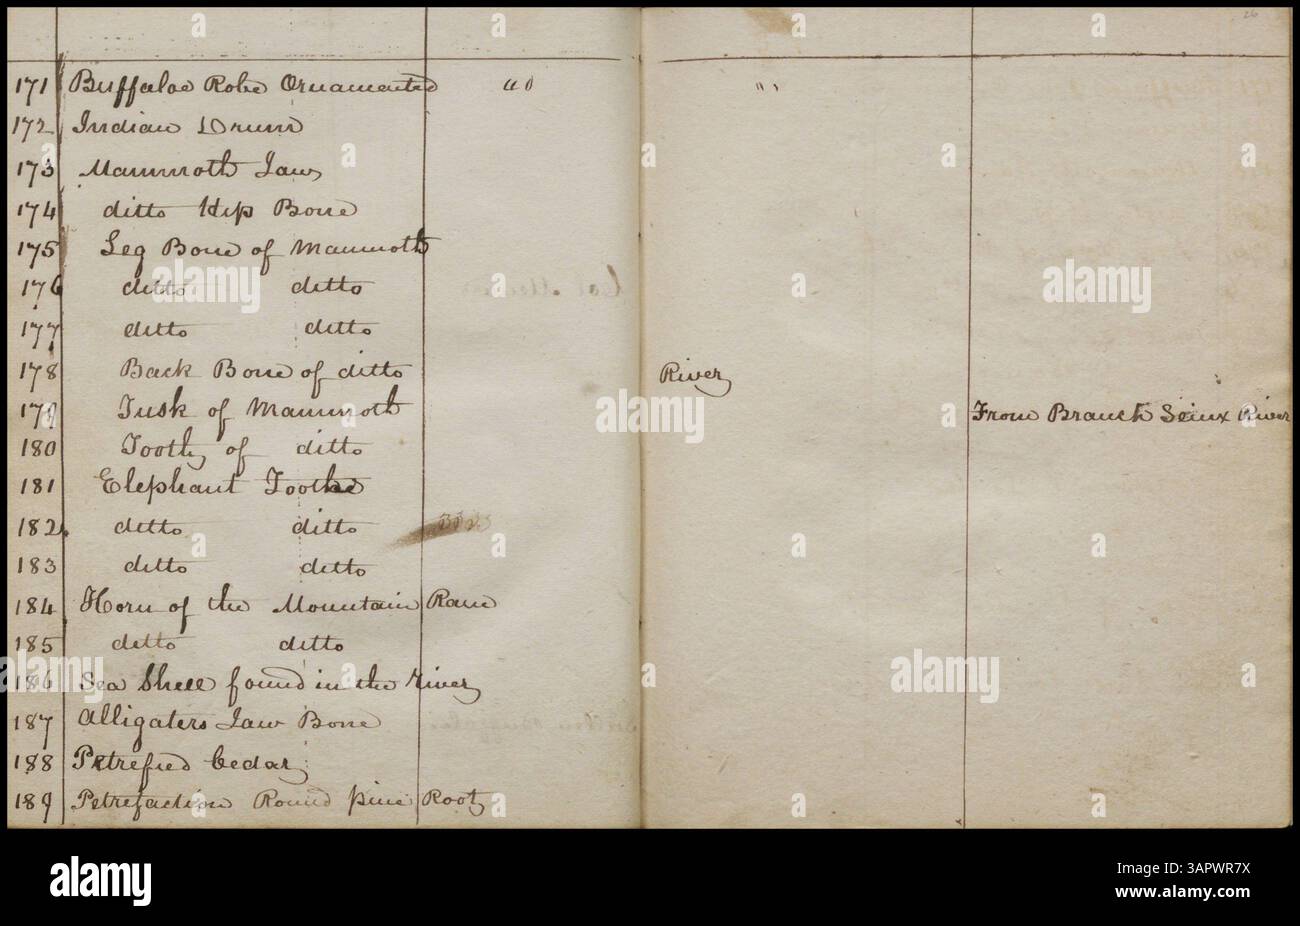 26
171 Buffaloe Robe Ornamented " "
172 Indian Drum
173 Mammoth Jaw
174 ditto Hip Bone
175 Leg Bone of Mammoth
176 ditto ditto
177 ditto ditto
178 Back Bone of ditto River
179 Tusk of Mammoth From Branch Sciux River
180 Tooth of ditto
181 Elephant Toothe
182 ditto ditto
183 ditto ditto
184 Horn of the Mountain Ram
185 ditto ditto
186 Sea Shell found in the river
187 Alligaters Jaw Bone
188 Petrefied Cedar
189 Petrefaction Round pine Root
alamy
Image ID: 3APWR7X
www.alamy.com